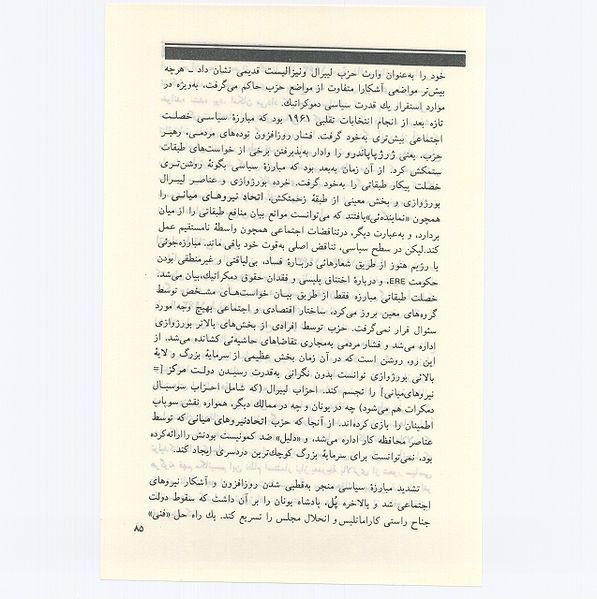 خود را به‌عنوان وارث حزب لیبرال ونیزالیست قدیمی نشان داد ـ هرچه
بیش‌تر مواضعی آشکارا متفاوت از مواضع حزب حاکم می‌گرفت، به‌ویژه در
موارد استقرار یك قدرت سیاسی دموکراتیك.
تازه بعد از انجام انتخابات تقلبی ۱۹۶۱ بود که مبارزهٔ سیاسی خصلت
اجتماعی بیش‌تری به‌خود گرفت. فشار روزافزون توده‌های مردمی، رهبر
حزب، یعنی ژرژپاپاندرو را وادار به‌پذیرفتن برخی از خواست‌های طبقات
ستمکش کرد. از آن زمان به‌بعد بود که مبارزهٔ سیاسی بگونهٔ روشن‌تری
خصلت پیکار طبقاتی را به‌خود گرفت. خرده بورژوازی و عناصر لیبرال
بورژوازی و بخش معینی از طبقهٔ زحمتکش، اتحاد نیروهای میانی را
همچون «نماینده‌ئی»یافتند که می‌توانست موانع بیان منافع طبقاتی را از میان
بردارد، و به‌عبارت دیگر، درتناقضات اجتماعی همچون واسطهٔ نامستقیم عمل
کند.لیکن در سطح سیاسی، تناقض اصلی به‌قوت خود باقی ماند. مبارزه‌جوئی
با رژیم هنوز از طریق شعارهائی دربارهٔ فساد، بی‌لیاقتی و غیرمنطقی بودن
حکومت ERE، و دربارهٔ اختناق پلیسی و فقدان حقوق دمکراتیك،بیان می‌شد.
خصلت طبقاتی مبارزه فقط از طریق بیان خواست‌های مشخص توسط
گروه‌های معین بروز می‌کرد، ساختار اقتصادی و اجتماعی بهیچ وجه مورد
سئوال قرار نمی‌گرفت. حزب توسط افرادی از بخش‌های بالاتر بورژوازی
اداره می‌شد و فشار مردمی به‌مجاری تقاضاهای حاشیه‌ئی کشانده می‌شد. از
این رو، روشن است که در آن زمان بخش عظیمی از سرمایهٔ بزرگ و لایهٔ
بالائی بورژوازی توانست بدون نگرانی به‌قدرت رسیدن دولت مرکز [=
نیروهای‌میانی] را تجسم کند. احزاب لیبرال (که شامل احزاب سوسیال
دمکرات هم می‌شود) چه در یونان و چه در ممالك دیگر، همواره نقش سوپاپ
اطمینان را بازی کرده‌اند. از آنجا که حزب اتحادنیروهای میانی که توسط
عناصر محافظه کار اداره می‌شد، و «دلیل» ضد کمونیست بودنش را ارائه‌کرده
بود، نمی‌توانست برای سرمایهٔ بزرگ کوچك‌ترین دردسری ایجاد کند.
تشدید مبارزهٔ سیاسی منجر به‌قطبی شدن روزافزون و آشکار نیروهای
اجتماعی شد و بالاخره پُل، پادشاه یونان را بر آن داشت که سقوط دولت
جناح راستی کارامانلیس و انحلال مجلس را تسریع کند. یك راه حل «فنی»
۸۵